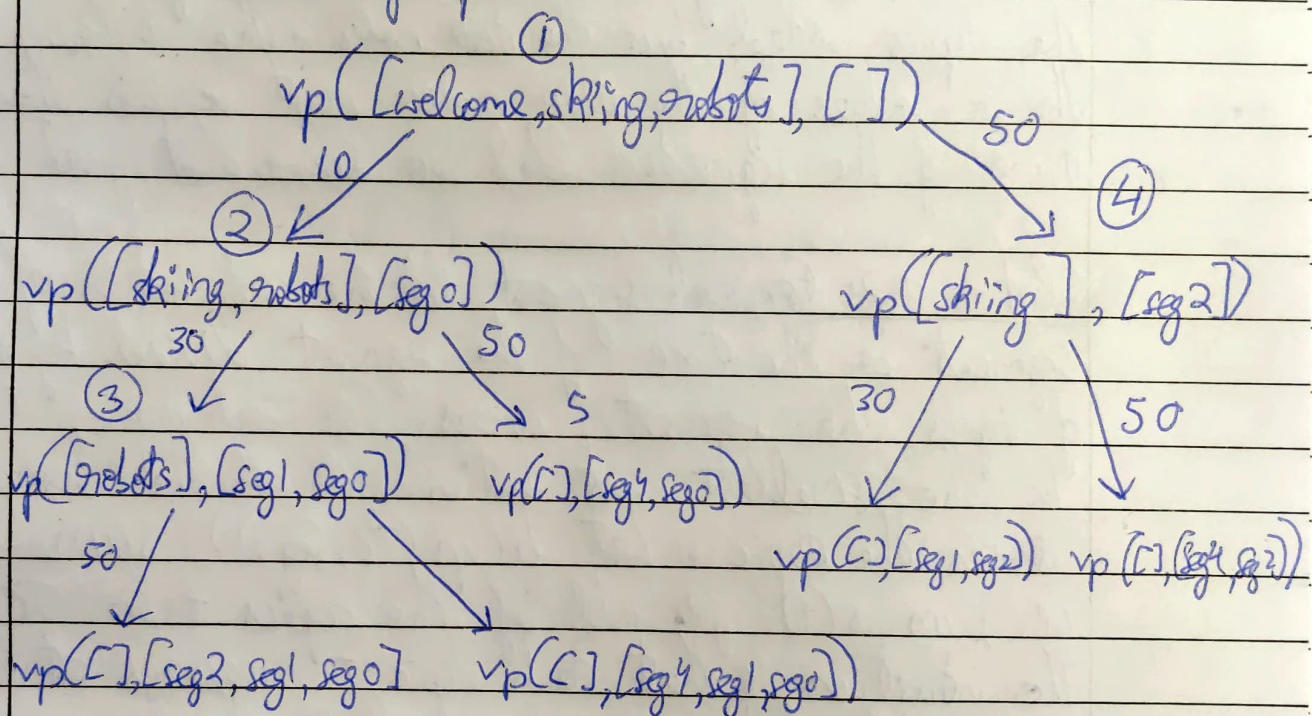 ①
vp([welcome,skiing,robots],[])
10 50
② ④
vp([skiing,robots],[seg0]) vp([skiing],[seg2])
30 50 30 50
③ 5
vp([robots],[seg1,seg0]) vp([],[seg4,seg0])
vp([],[seg1,seg2]) vp([],[seg4,seg2])
50
vp([],[seg2,seg1,seg0] vp([],[seg4,seg1,seg0])